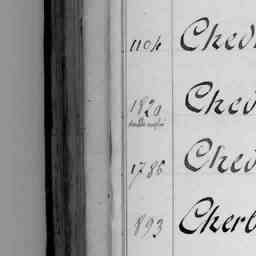 1104 Chev
1820 Chev
1786 Chev
893 Cherb